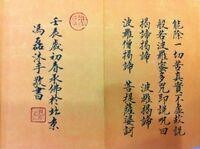 能除一切苦真實不虛故說
般若波羅蜜多咒即說咒曰
揭諦揭諦 波羅揭諦
波羅僧揭諦 菩提薩婆訶
壬辰歲初春承佛於北京
馮磊沐手敬書